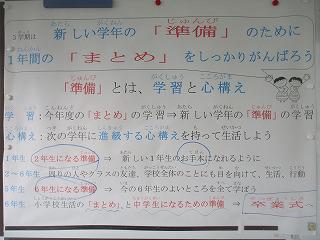 3学期は 新しい学年の「準備」のために
1年間の「まとめ」をしっかりがんばろう
「準備」とは、学習と心構え
学習:今年度の「まとめ」の学習⇒新しい学年の「準備」の学習
心構え:次の学年に進級する心構えを持って生活しよう
1年生 2年生になる準備 ⇒ 新しい1年生のお手本になれるように
2～6年生 周りの人やクラスの友達、学校全体のことにも目を向けて、生活、行動
5年生 6年生になる準備 ⇒ 今の6年生のよいところを全て学ぼう
6年生 小学校生活の「まとめ」と中学生になるための準備 ⇒ 卒業式へ